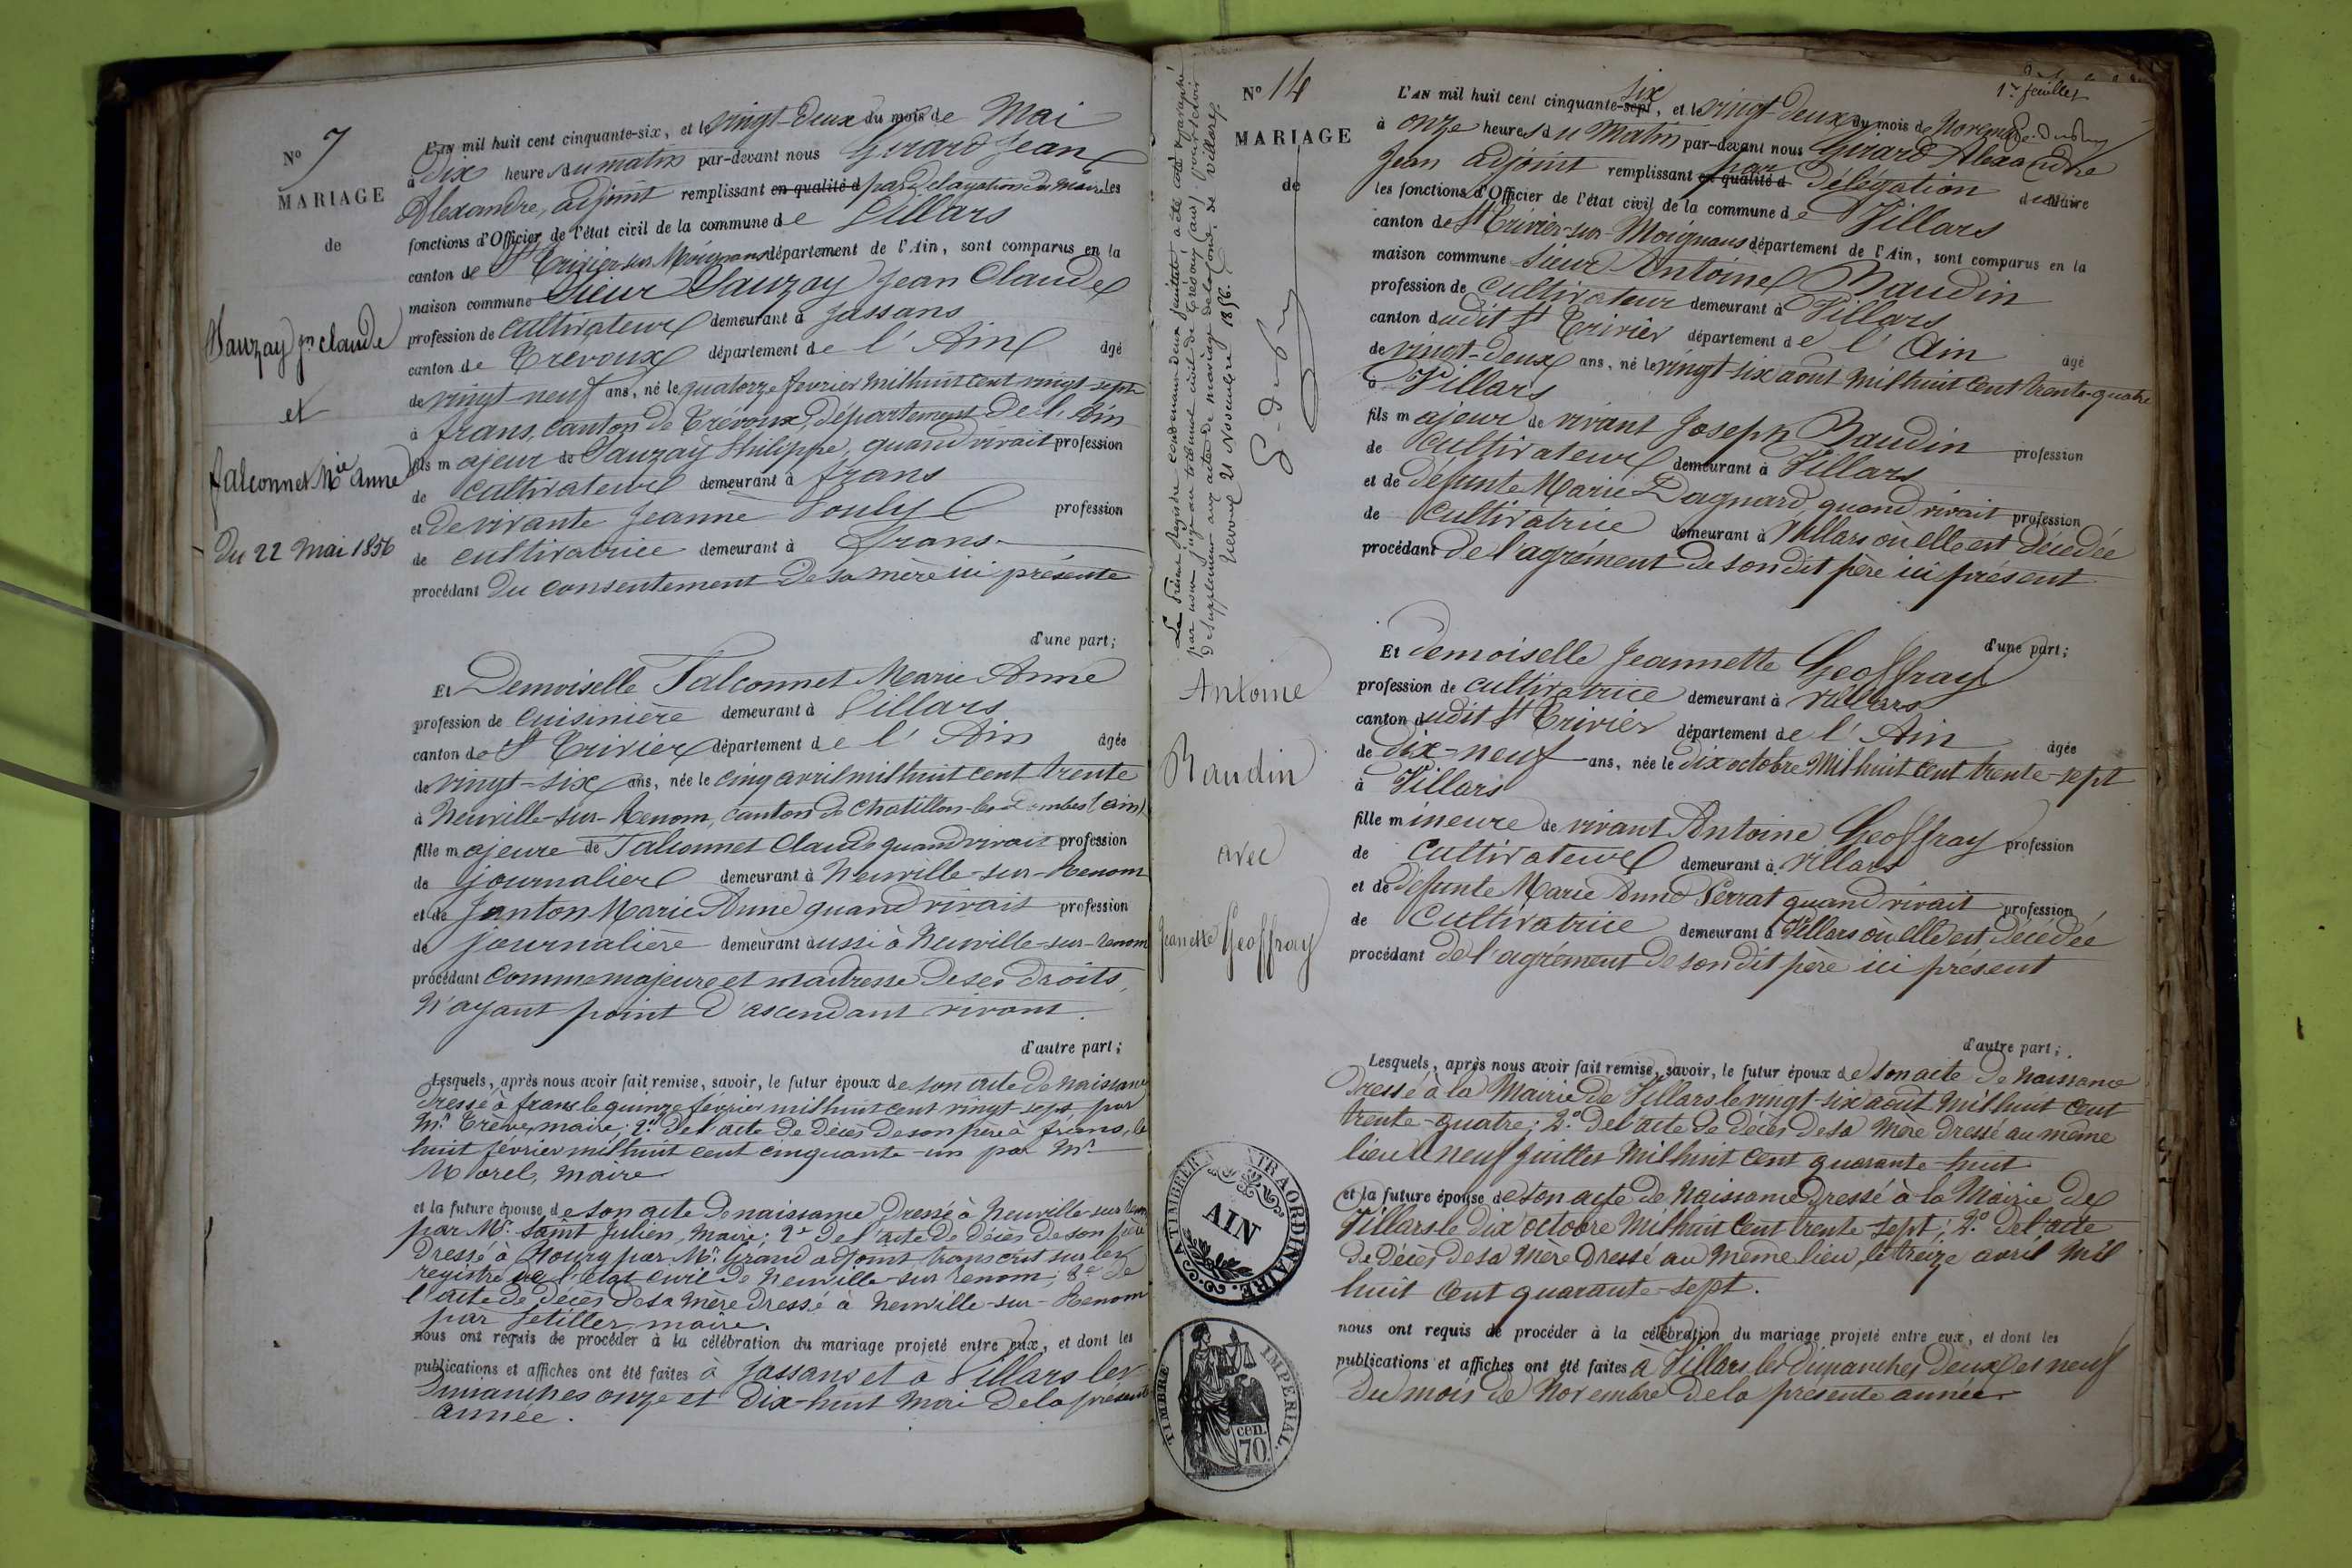 N° 7
MARIAGE
de
Sauzay jn claude
et
falconnet Mie anne
Du 22 Mai 1856
L'AN mil huit cent cinquante-six, et le vingt-deux du mois de Mai
à dix heures du matin par-devant nous Girard Jean
Alexandre, adjoint remplissant en qualité d par délégation du Maire les
fonctions d'Officier de l'état civil de la commune de Villars
canton de St Trivier sur Moignans département de l'Ain, sont comparus en la
maison commune Sieur Sauzay Jean Claude
profession de cultivateur demeurant à Jassans
canton de Trevoux département de l'Ain âgé
de vingt-neuf ans, né le quatorze fevrier mil huit cent vingt-sept
à frans, canton de Trévoux, département de l'Ain
fils majeur de Sauzay Philippe, quand vivait profession
de cultivateur demeurant à frans
et de vivante Jeanne Souly profession
de cultivatrice demeurant à frans
procédant du consentement de sa mère ici présente
d'une part;
Et Demoiselle Falconnet Marie Anne
profession de cuisinière demeurant à Villars
canton de St Trivier département de l'Ain âgée
de vingt-six ans, née le cinq avril mil huit cent trente
à Neuville-sur-Renom, canton de Chatillon-les-Dombes (ain)
fille majeure de Falconnet Claude quand vivait profession
de journalier demeurant à Neuville-sur-Renom
et de Janton Marie Anne quand vivait profession
de journalière demeurant aussi à Neuville-sur-renom
procédant comme majeure et maitresse de ses droits,
n'ayant point d'ascendant vivant.
d'autre part;
Lesquels, après nous avoir fait remise, savoir, le futur époux de son acte de naissance
dressé à frans le quinze février mil huit cent vingt-sept, par
Mr Trève, maire; 2° de l'acte de décès de son père à frans, le
huit février mil huit cent cinquante-un par Mr
Morel, maire
et la future épouse de son acte de naissance dressé à Neuville-sur-Renom
par Mr. Saint Julien, maire; 2° de l'acte de décès de son père
dressé à Bourg par Mr. Grand adjoint transcrit sur les
registre de l'état civil de Neuville-sur Renom; 3° de
l'acte de décès de sa mère dressé à Neuville-sur-Renom
par maire.
nous ont requis de procéder à la célébration du mariage projeté entre eux, et dont les
publications et affiches ont été faites à Jassans et à Villars les
Dimanches onze et Dix-huit Mai de la présente
année.
Le Présent Registre contenant deux feuillets a été coté et paraphé
par nous juge au tribunal civil de Trévoux (ain) pour servir
de supplément aux actes de mariage de la cond. de Villars
Trevoux 21 Novembre 1856.
N° 14
MARIAGE
de
Antoine
Baudin
avec
Jeannette Geoffray
1er feuillet
L'AN mil huit cent cinquante-sept six, et le vingt deux du mois de Novembre
à onze heures du Matin par-devant nous Girard Alexandre
Jean adjoint remplissant en qualité d par délégation du Maire
les fonctions d'Officier de l'état civil de la commune de Villars
canton de St Trivier-sur-Moignans département de l'Ain, sont comparus en la
maison commune Sieur Antoine Baudin
profession de cultivateur demeurant à Villars
canton dudit St Trivier département de l'Ain âgé
de vingt-deux ans, né le vingt-six aout mil huit cent trente-quatre
à Villars
fils majeur de vivant Joseph Baudin profession
de cultivateur demeurant à Villars
et de défunte Marie Dagnard, quand vivait profession
de cultivatrice demeurant à Villars où elle est décédée
procédant de l'agrément de son dit père ici présent
d'une part;
Et demoiselle Jeannette Geoffray
profession de cultivatrice demeurant à Villars
canton dudit St Trivier département de l'Ain âgée
de dix-neuf ans, née le dix octobre mil huit cent trente-sept
à Villars
fille mineure de vivant Antoine Geoffray profession
de cultivateur demeurant à Villars
et de défunte Marie Anne Perrat quand vivait profession
de cultivatrice demeurant à Villars où elle est décédée
procédant de l'agrément de son dit père ici présent
d'autre part;
Lesquels, après nous avoir fait remise, savoir, le futur époux de son acte de naissance
dressé à la Mairie de Villars le vingt-six aout mil huit cent
trente-quatre; 2° de l'acte de décès de sa mère dressé au même
lieu le neuf juillet mil huit cent quarante-huit
et la future épouse de son acte de naissance dressé à la Mairie de
Villars le dix octobre mil huit cent trente-sept; 2° de l'acte
de décès de sa mère dressé au même lieu, le treize avril mil
huit cent quarante-sept.
nous ont requis de procéder à la célébration du mariage projeté entre eux, et dont les
publications et affiches ont été faites à Villars les dimanches deux et neuf
du mois de Novembre de la présente année
A TIMBRER EXTRAORDINAIRE.
AIN
TIMBRE IMPERIAL.
cen.
70.